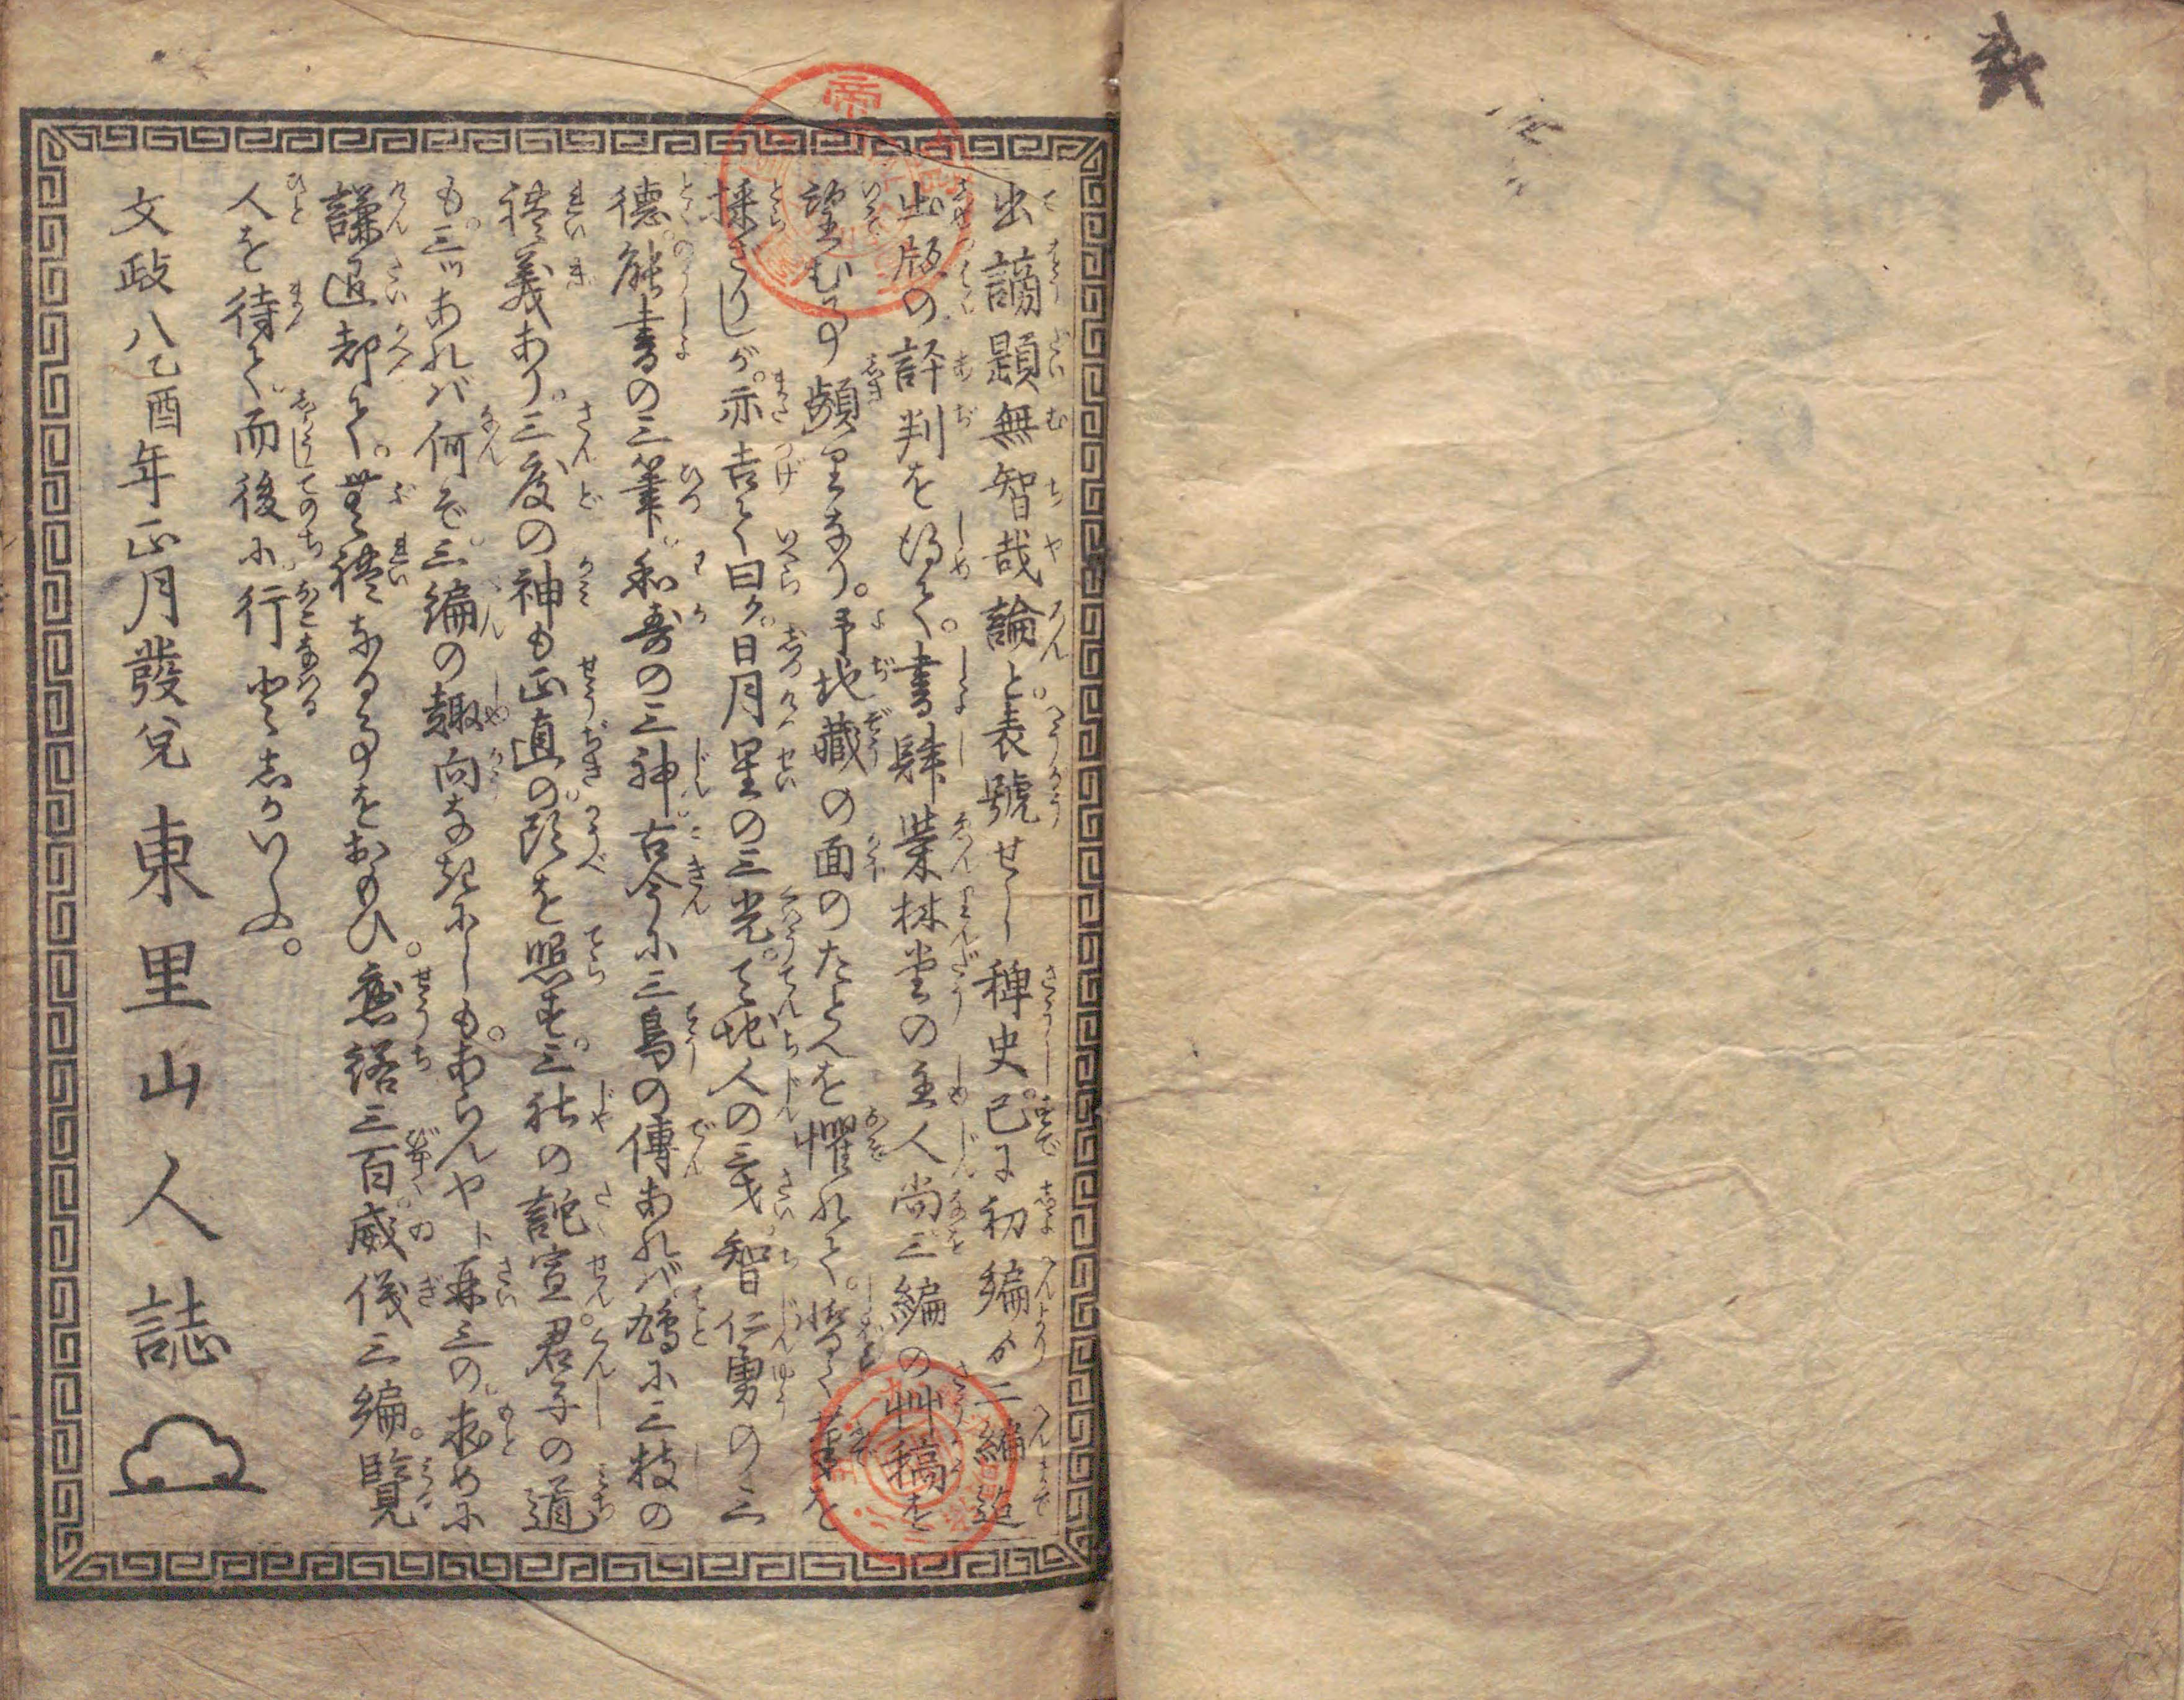 出謫題無智哉論と。表號せし稗史。已に初編ゟ二編迄
出版の評判を得て。書肆榮林堂の主人尚三編の艸稿を
望むる事頻りなり。予地藏の面のたとへを懼れて。暫く筆を
採さりしが。亦告て曰ク。日月星の三光。天地人の三才。智仁勇の三
德。能書の三筆。和哥の三神。古今に三鳥の傳あれバ。鳩に三枝の
禮義あり。三度の神も正直の。頭を照す。三社の託宣。君子の道
も。三ツあれバ何ぞ。三編の趣向なきにしも。あらんやト再三の。求めに
謙退却て。無禮なる事をおもひ。 三百威儀三編。覽
人を待て。而後に。行 しかいふ。
文政八乙酉年正月發兌 東里山人誌